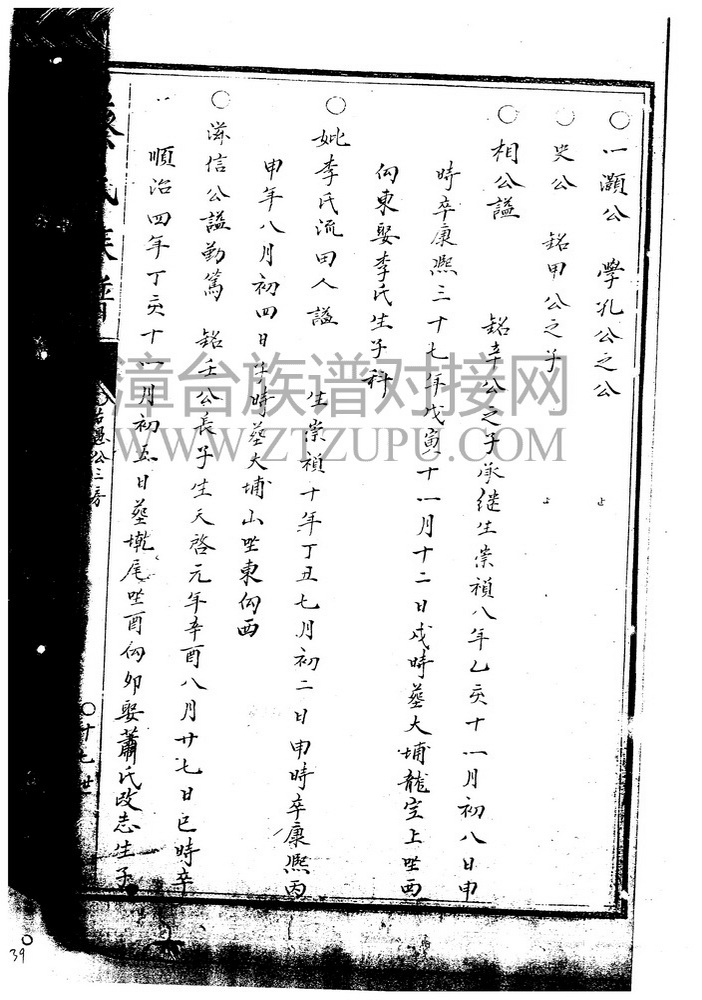 ○一灝公 學孔公之公
○史公 銘甲公之子
○相公謚 銘辛公之子承继生崇禎八年乙亥十一月初八日申
時卒康熙三十七年戊寅十一月十二日戌時葬大埔龍空上坐西
向東娶李氏生子科
○妣李氏流田人謚 生崇禎十年丁丑七月初二日申時卒康熙丙
申年八月初四日 時葬大埔山坐東向西
○滋信公謚勤篤 銘壬公長子生天啓元年辛酉八月廿七日巳時卒
順治四年丁亥十一月初五日葬墘尾坐酉向卯娶蕭氏改志生子
氏族譜
公三房
○十七世
漳台族谱对接网
WWW.ZTZUPU.COM
39